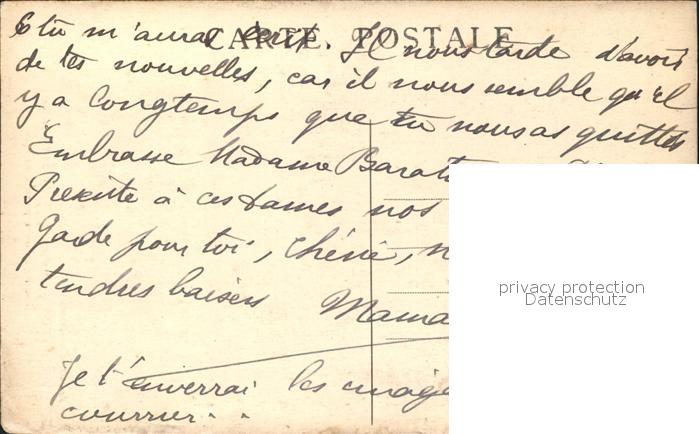 CARTE POSTALE
si tu m'auras écrit. Il nous tarde d'avoir
de tes nouvelles, car il nous semble qu'il
y a longtemps que tu nous as quittés
Embrasse Madame Barat
Présente à ces Dames nos
Garde pour toi, Chérie,
tendres baisers Mama
Je t'enverrai les
courrier..
privacy protection
Datenschutz